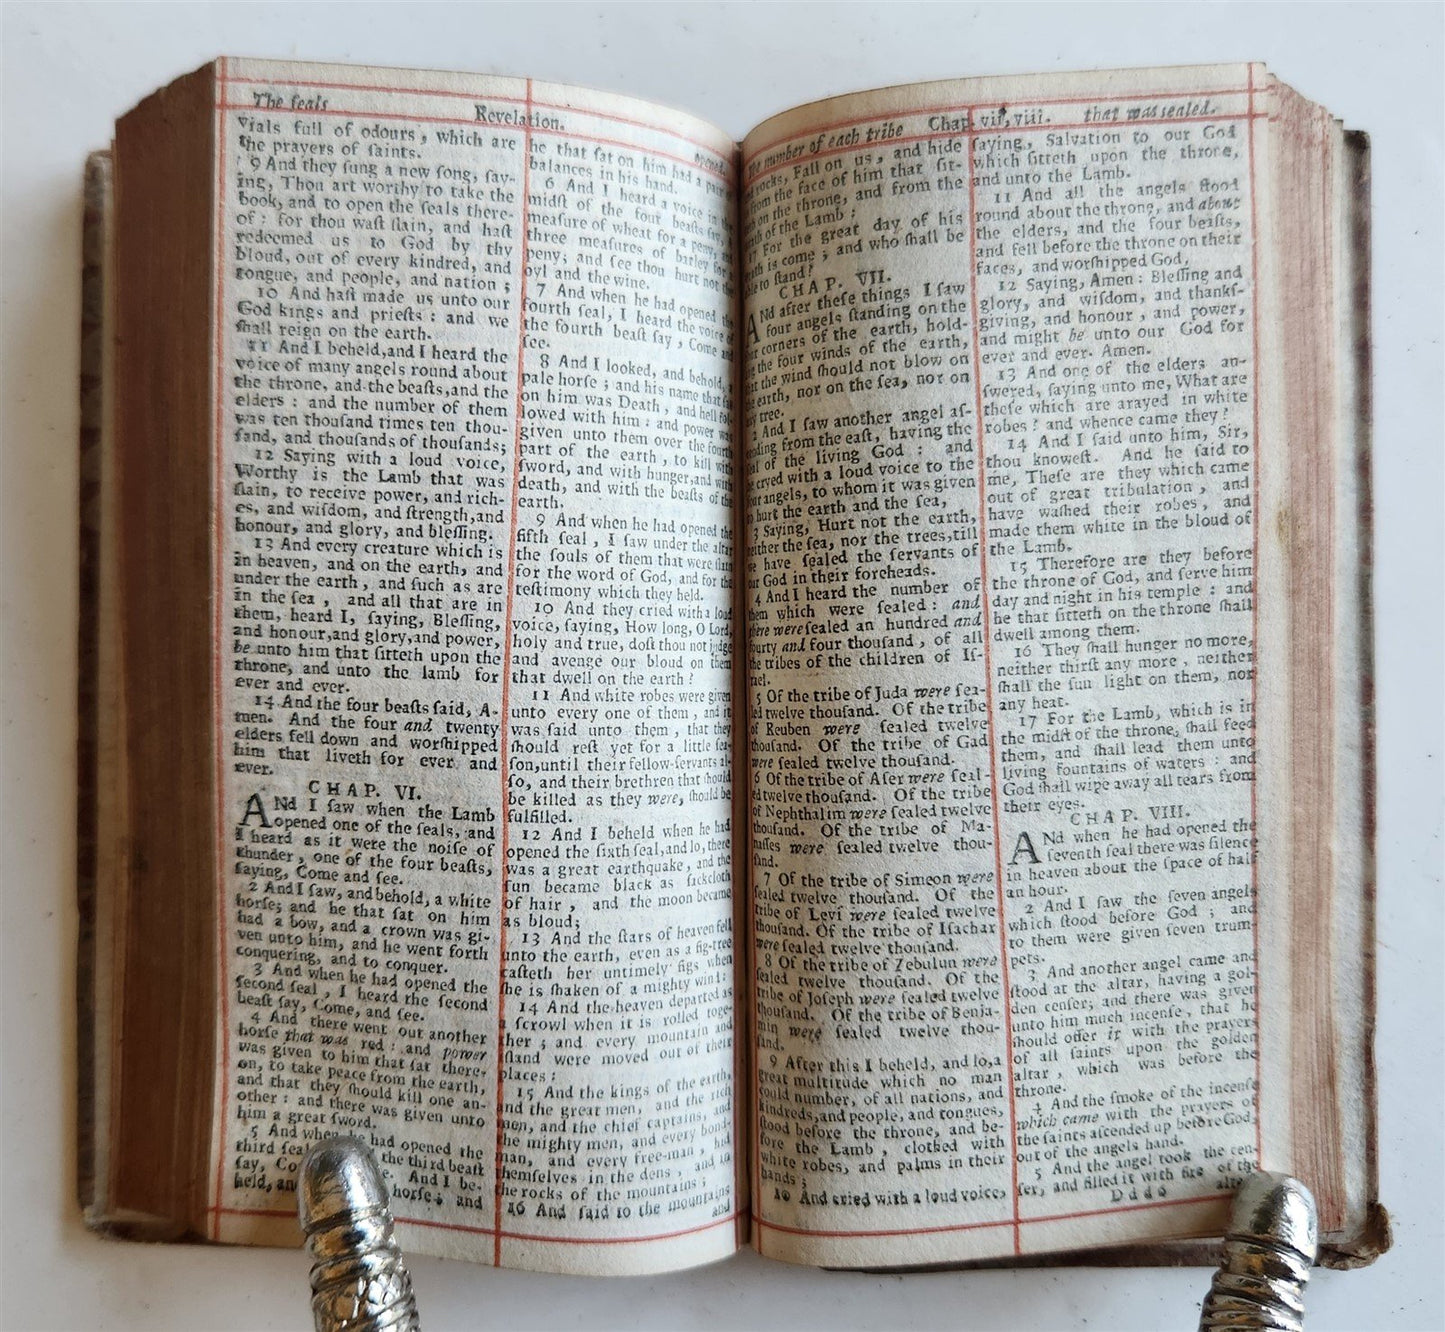 The seals
Revelation.
opened.
vials full of odours, which are
the prayers of ſaints.
9 And they ſung a new ſong, ſay-
ing, Thou art worthy to take the
book, and to open the ſeals there-
of: for thou waſt ſlain, and haſt
redeemed us to God by thy
bloud, out of every kindred, and
tongue, and people, and nation;
10 And haſt made us unto our
God kings and prieſts: and we
ſhall reign on the earth.
11 And I beheld, and I heard the
voice of many angels round about
the throne, and the beaſts, and the
elders: and the number of them
was ten thouſand times ten thou-
ſand, and thouſands of thouſands;
12 Saying with a loud voice,
Worthy is the Lamb that was
ſlain, to receive power, and rich-
es, and wiſdom, and ſtrength, and
honour, and glory, and bleſſing.
13 And every creature which is
in heaven, and on the earth, and
under the earth, and ſuch as are
in the ſea, and all that are in
them, heard I, ſaying, Bleſſing,
and honour, and glory, and power,
be unto him that ſitteth upon the
throne, and unto the lamb for
ever and ever.
14 And the four beaſts ſaid, A-
men. And the four and twenty
elders fell down and worſhipped
him that liveth for ever and
ever.
CHAP. VI.
ANd I ſaw when the Lamb
opened one of the ſeals, and
I heard as it were the noiſe of
thunder, one of the four beaſts,
ſaying, Come and ſee.
2 And I ſaw, and behold, a white
horſe; and he that ſat on him
had a bow, and a crown was gi-
ven unto him, and he went forth
conquering, and to conquer.
3 And when he had opened the
ſecond ſeal, I heard the ſecond
beaſt ſay, Come, and ſee.
4 And there went out another
horſe that was red: and power
was given to him that ſat there-
on, to take peace from the earth,
and that they ſhould kill one an-
other: and there was given unto
him a great ſword.
5 And when he had opened the
third ſeal the third beaſt
ſay, And I be-
held, an horſe; and
he that ſat on him had a pair of
balances in his hand.
6 And I heard a voice in the
midſt of the four beaſts ſay, A
meaſure of wheat for a peny, and
three meaſures of barley for a
peny; and ſee thou hurt not the
oyl and the wine.
7 And when he had opened the
fourth ſeal, I heard the voice of
the fourth beaſt ſay, Come and
ſee.
8 And I looked, and behold, a
pale horſe; and his name that ſat
on him was Death, and hell fol-
lowed with him: and power was
given unto them over the fourth
part of the earth, to kill with
ſword, and with hunger, and with
death, and with the beaſts of the
earth.
9 And when he had opened the
fifth ſeal, I ſaw under the altar
the ſouls of them that were ſlain
for the word of God, and for the
teſtimony which they held.
10 And they cried with a loud
voice, ſaying, How long, O Lord,
holy and true, doſt thou not judge
and avenge our bloud on them
that dwell on the earth?
11 And white robes were given
unto every one of them, and it
was ſaid unto them, that they
ſhould reſt yet for a little ſea-
ſon, until their fellow-ſervants al-
ſo, and their brethren that ſhould
be killed as they were, ſhould be
fulfilled.
12 And I beheld when he had
opened the ſixth ſeal, and lo, there
was a great earthquake, and the
ſun became black as ſackcloth
of hair, and the moon became
as bloud;
13 And the ſtars of heaven fell
unto the earth, even as a fig-tree
caſteth her untimely figs when
ſhe is ſhaken of a mighty wind:
14 And the heaven departed as
a ſcrowl when it is rolled toge-
ther; and every mountain and
iſland were moved out of their
places:
15 And the kings of the earth,
and the great men, and the rich
men, and the chief captains, and
the mighty men, and every bond-
man, and every free-man, hid
themſelves in the dens, and in
the rocks of the mountains;
16 And ſaid to the mountains
and
The number of each tribe
Chap. vii, viii.
that was sealed.
and rocks, Fall on us, and hide
us from the face of him that ſit-
teth on the throne, and from the
wrath of the Lamb:
17 For the great day of his
wrath is come; and who ſhall be
able to ſtand?
CHAP. VII.
ANd after theſe things I ſaw
four angels ſtanding on the
four corners of the earth, hold-
ing the four winds of the earth,
that the wind ſhould not blow on
the earth, nor on the ſea, nor on
any tree.
2 And I ſaw another angel aſ-
cending from the eaſt, having the
ſeal of the living God: and
he cryed with a loud voice to the
four angels, to whom it was given
to hurt the earth and the ſea,
3 Saying, Hurt not the earth,
neither the ſea, nor the trees, till
we have ſealed the ſervants of
our God in their foreheads.
4 And I heard the number of
them which were ſealed: and
there were ſealed an hundred and
fourty and four thouſand, of all
the tribes of the children of Iſ-
rael.
5 Of the tribe of Juda were ſea-
led twelve thouſand. Of the tribe
of Reuben were ſealed twelve
thouſand. Of the tribe of Gad
were ſealed twelve thouſand.
6 Of the tribe of Aſer were ſeal-
ed twelve thouſand. Of the tribe
of Nephthalim were ſealed twelve
thouſand. Of the tribe of Ma-
naſſes were ſealed twelve thou-
ſand.
7 Of the tribe of Simeon were
ſealed twelve thouſand. Of the
tribe of Levi were ſealed twelve
thouſand. Of the tribe of Iſachar
were ſealed twelve thouſand.
8 Of the tribe of Zebulun were
ſealed twelve thouſand. Of the
tribe of Joſeph were ſealed twelve
thouſand. Of the tribe of Benja-
min were ſealed twelve thou-
ſand.
9 After this I beheld, and lo, a
great multitude which no man
could number, of all nations, and
kindreds, and people, and tongues,
ſtood before the throne, and be-
fore the Lamb, clothed with
white robes, and palms in their
hands;
10 And cried with a loud voice,
ſaying, Salvation to our God
which ſitteth upon the throne,
and unto the Lamb.
11 And all the angels ſtood
round about the throne, and about
the elders, and the four beaſts,
and fell before the throne on their
faces, and worſhipped God,
12 Saying, Amen: Bleſſing and
glory, and wiſdom, and thankſ-
giving, and honour, and power,
and might be unto our God for
ever and ever. Amen.
13 And one of the elders an-
ſwered, ſaying unto me, What are
theſe which are arayed in white
robes? and whence came they?
14 And I ſaid unto him, Sir,
thou knoweſt. And he ſaid to
me, Theſe are they which came
out of great tribulation, and
have waſhed their robes, and
made them white in the bloud of
the Lamb.
15 Therefore are they before
the throne of God, and ſerve him
day and night in his temple: and
he that ſitteth on the throne ſhall
dwell among them.
16 They ſhall hunger no more,
neither thirſt any more, neither
ſhall the ſun light on them, nor
any heat.
17 For the Lamb, which is in
the midſt of the throne, ſhall feed
them, and ſhall lead them unto
living fountains of waters: and
God ſhall wipe away all tears from
their eyes.
CHAP. VIII.
ANd when he had opened the
ſeventh ſeal there was ſilence
in heaven about the ſpace of half
an hour.
2 And I ſaw the ſeven angels
which ſtood before God; and
to them were given ſeven trum-
pets.
3 And another angel came and
ſtood at the altar, having a gol-
den cenſer; and there was given
unto him much incenſe, that he
ſhould offer it with the prayers
of all ſaints upon the golden
altar, which was before the
throne.
4 And the ſmoke of the incenſe
which came with the prayers of
the ſaints aſcended up before God,
out of the angels hand.
5 And the angel took the cen-
ſer, and filled it with fire of the
Dddd 6 altar